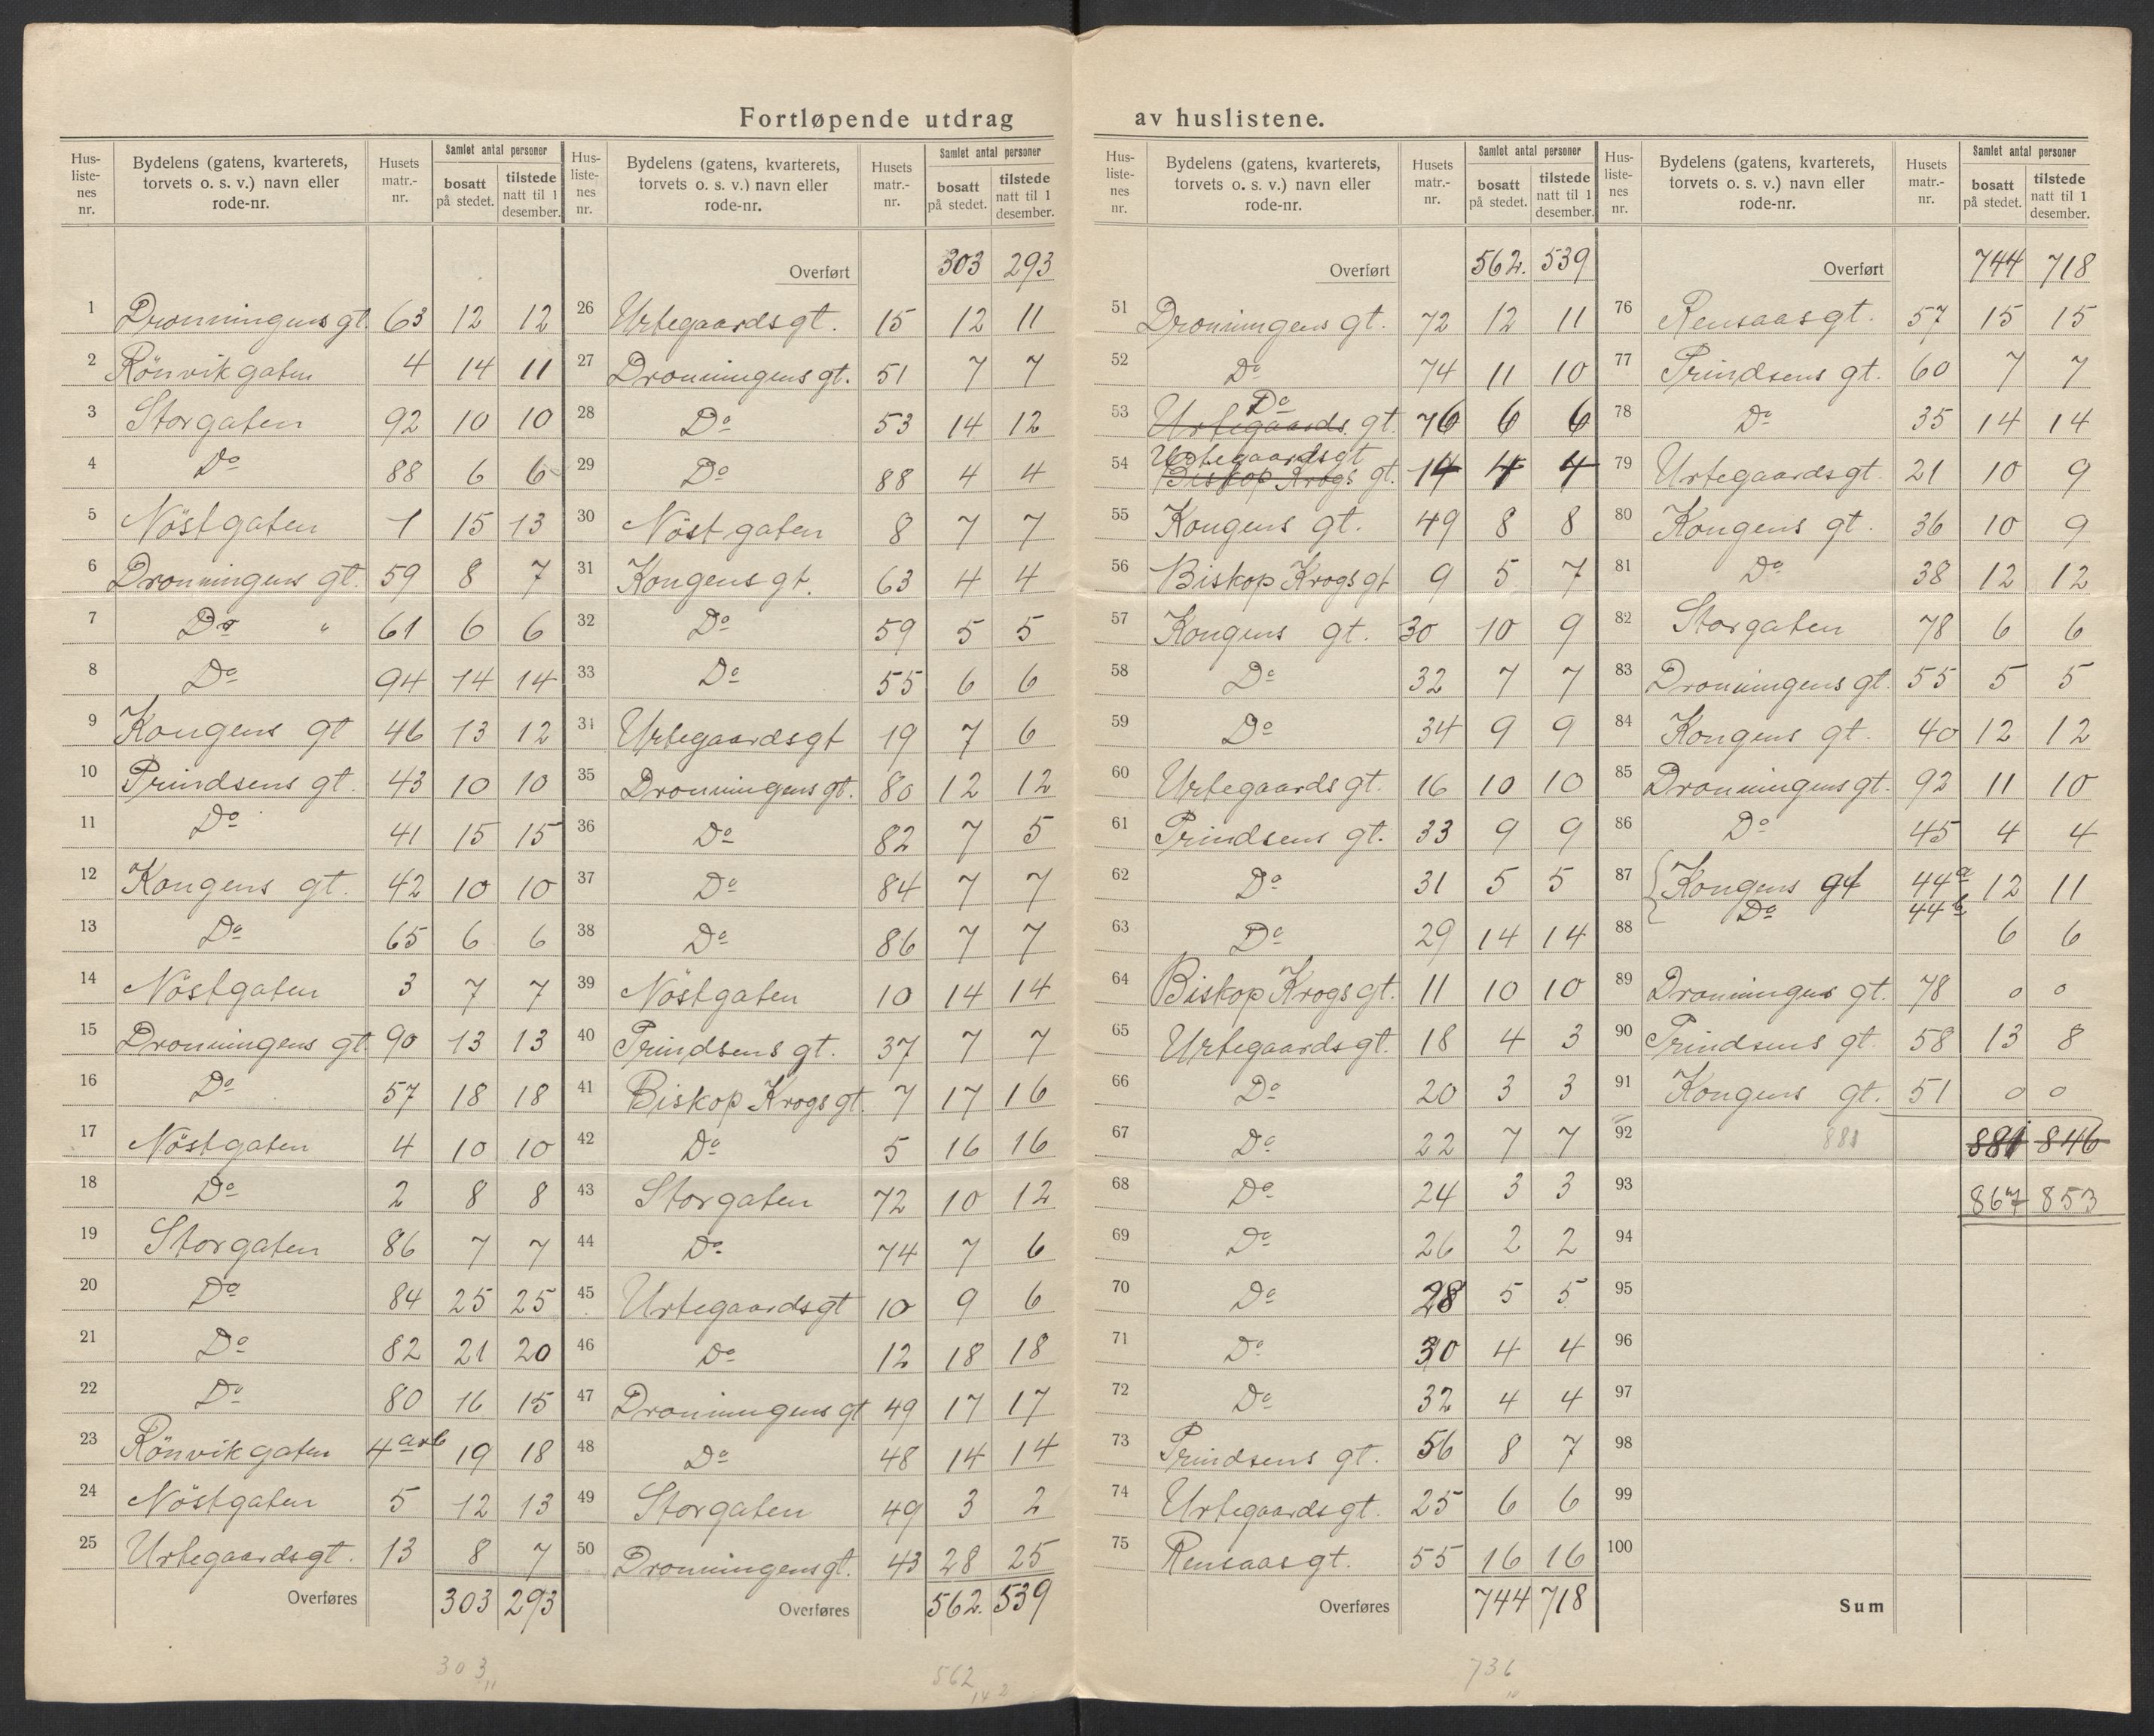 Fortløpende utdrag av huslistene.
Hus-listenes nr. | Bydelens (gatens, kvarterets, torvets o. s. v.) navn eller rode-nr. | Husets matr.-nr. | Samlet antal personer bosatt på stedet. | tilstede natt til 1 desember.
1 Dronningens gt. 63 12 12
2 Rönvikgaten 4 14 11
3 Storgaten 92 10 10
4 Do 88 6 6
5 Nöstgaten 1 15 13
6 Dronningens gt. 59 8 7
7 Do " 61 6 6
8 Do 94 14 14
9 Kongens gt 46 13 12
10 Prindsens gt. 43 10 10
11 Do 41 15 15
12 Kongens gt. 42 10 10
13 Do 65 6 6
14 Nöstgaten 3 7 7
15 Dronningens gt. 90 13 13
16 Do 57 18 18
17 Nöstgaten 4 10 10
18 Do 2 8 8
19 Storgaten 86 7 7
20 Do 84 25 25
21 Do 82 21 20
22 Do 80 16 15
23 Rönvikgaten 4 a+b 19 18
24 Nöstgaten 5 12 13
25 Urtegaardsgt. 13 8 7
Overføres 303 293
303
Hus-listenes nr. | Bydelens (gatens, kvarterets, torvets o. s. v.) navn eller rode-nr. | Husets matr.-nr. | Samlet antal personer bosatt på stedet. | tilstede natt til 1 desember.
Overført 303 293
26 Urtegaardsgt. 15 12 11
27 Dronningens gt. 51 7 7
28 Do 53 14 12
29 Do 88 4 4
30 Nöstgaten 8 7 7
31 Kongens gt. 63 4 4
32 Do 59 5 5
33 Do 55 6 6
34 Urtegaardsgt 19 7 6
35 Dronningens gt. 80 12 12
36 Do 82 7 5
37 Do 84 7 7
38 Do 86 7 7
39 Nöstgaten 10 14 14
40 Prindsens gt. 37 7 7
41 Biskop Krogs gt. 7 17 16
42 Do 5 16 16
43 Storgaten 72 10 12
44 Do 74 7 6
45 Urtegaardsgt 10 9 6
46 Do 12 18 18
47 Dronningens gt 49 17 17
48 Do 48 14 14
49 Storgaten 49 3 2
50 Dronningens gt. 43 28 25
Overføres 562. 539
562
Hus-listenes nr. | Bydelens (gatens, kvarterets, torvets o. s. v.) navn eller rode-nr. | Husets matr.-nr. | Samlet antal personer bosatt på stedet. | tilstede natt til 1 desember.
Overført 562. 539
51 Dronningens gt. 72 12 11
52 Do 74 11 10
Do
53 Urtegaards gt. 76 6 6
Urtegaardsgt
54 Biskop Krogs gt. 14 4 4
55 Kongens gt. 49 8 8
56 Biskop Krogs gt 9 5 7
57 Kongens gt. 30 10 9
58 Do 32 7 7
59 Do 34 9 9
60 Urtegaards gt. 16 10 10
61 Prindsens gt. 33 9 9
62 Do 31 5 5
63 Do 29 14 14
64 Biskop Krogs gt. 11 10 10
65 Urtegaardsgt. 18 4 3
66 Do 20 3 3
67 Do 22 7 7
68 Do 24 3 3
69 Do 26 2 2
70 Do 28 5 5
71 Do 30 4 4
72 Do 32 4 4
73 Prindsens gt. 56 8 7
74 Urtegaardsgt. 25 6 6
75 Rensaasgt. 55 16 16
Overføres 744 718
736
Hus-listenes nr. | Bydelens (gatens, kvarterets, torvets o. s. v.) navn eller rode-nr. | Husets matr.-nr. | Samlet antal personer bosatt på stedet. | tilstede natt til 1 desember.
Overført 744 718
76 Rensaasgt. 57 15 15
77 Prindsens gt. 60 7 7
78 Do 35 14 14
79 Urtegaardsgt. 21 10 9
80 Kongens gt. 36 10 9
81 Do 38 12 12
82 Storgaten 78 6 6
83 Dronningens gt. 55 5 5
84 Kongens gt. 40 12 12
85 Dronningens gt. 92 11 10
86 Do 45 4 4
87 Kongens gt 44 a 12 11
88 Do 44 b 6 6
89 Dronningens gt. 78 0 0
90 Prindsens gt. 58 13 8
91 Kongens gt. 51 0 0
92 881 881 846
93 867 853
94
95
96
97
98
99
100
Sum